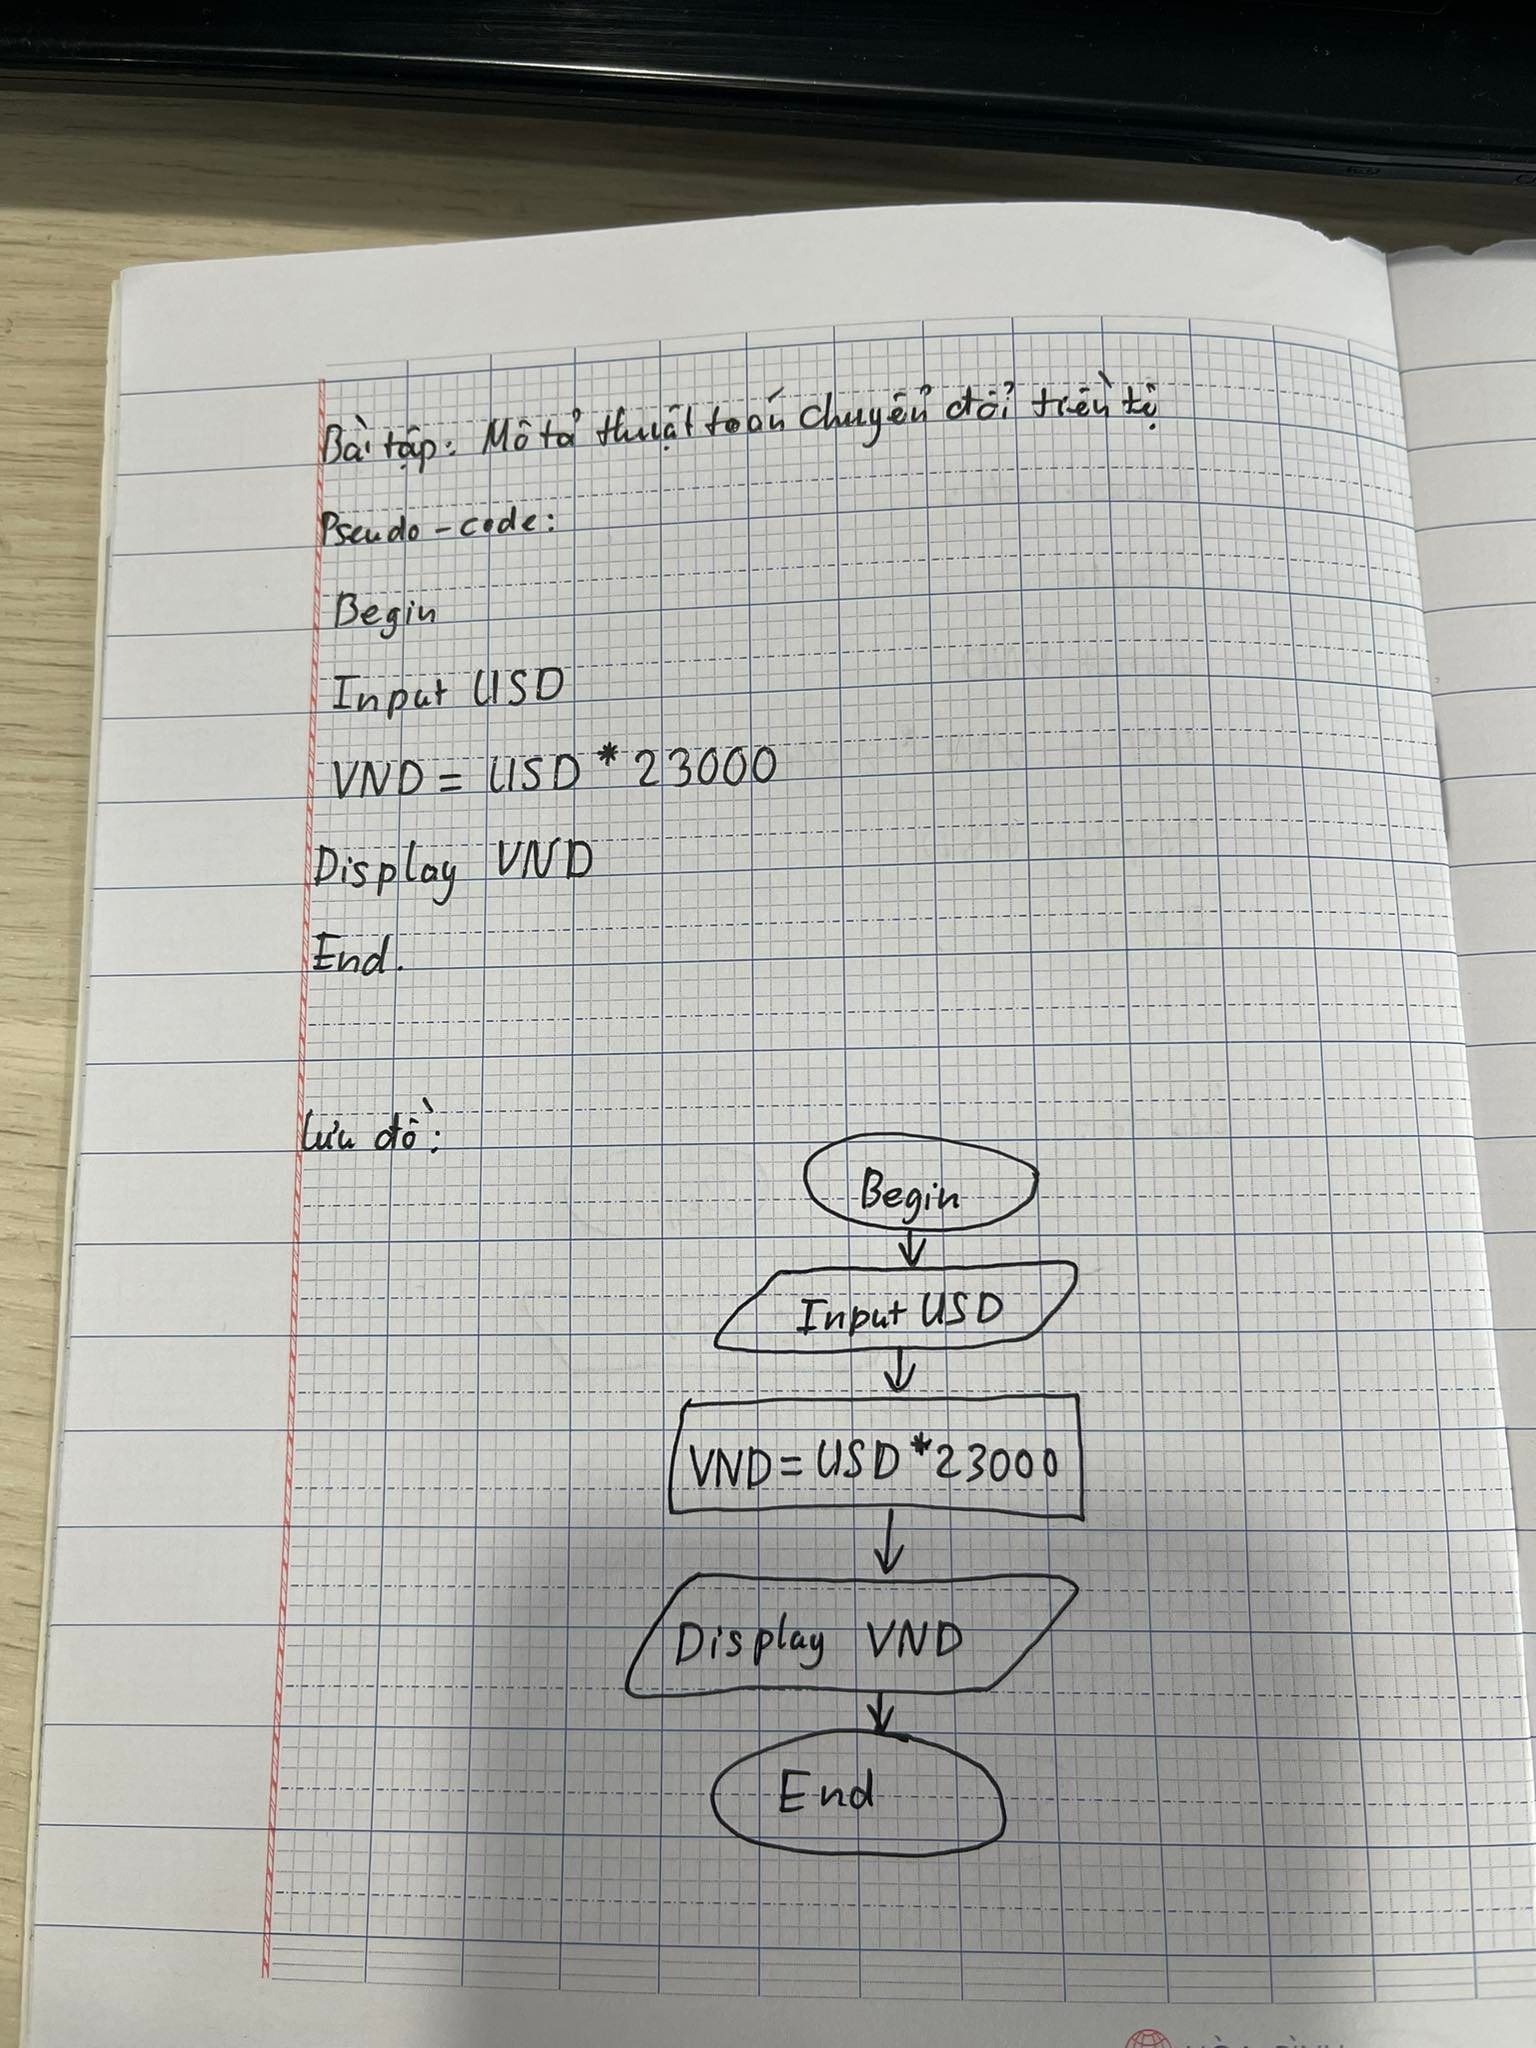 Bài tập: Mô tả thuật toán chuyển đổi tiền tệ
Pseudo-code:
Begin
Input USD
VND = USD * 23000
Display VND
End.
Lưu đồ:
Begin
Input USD
VND = USD * 23000
Display VND
End